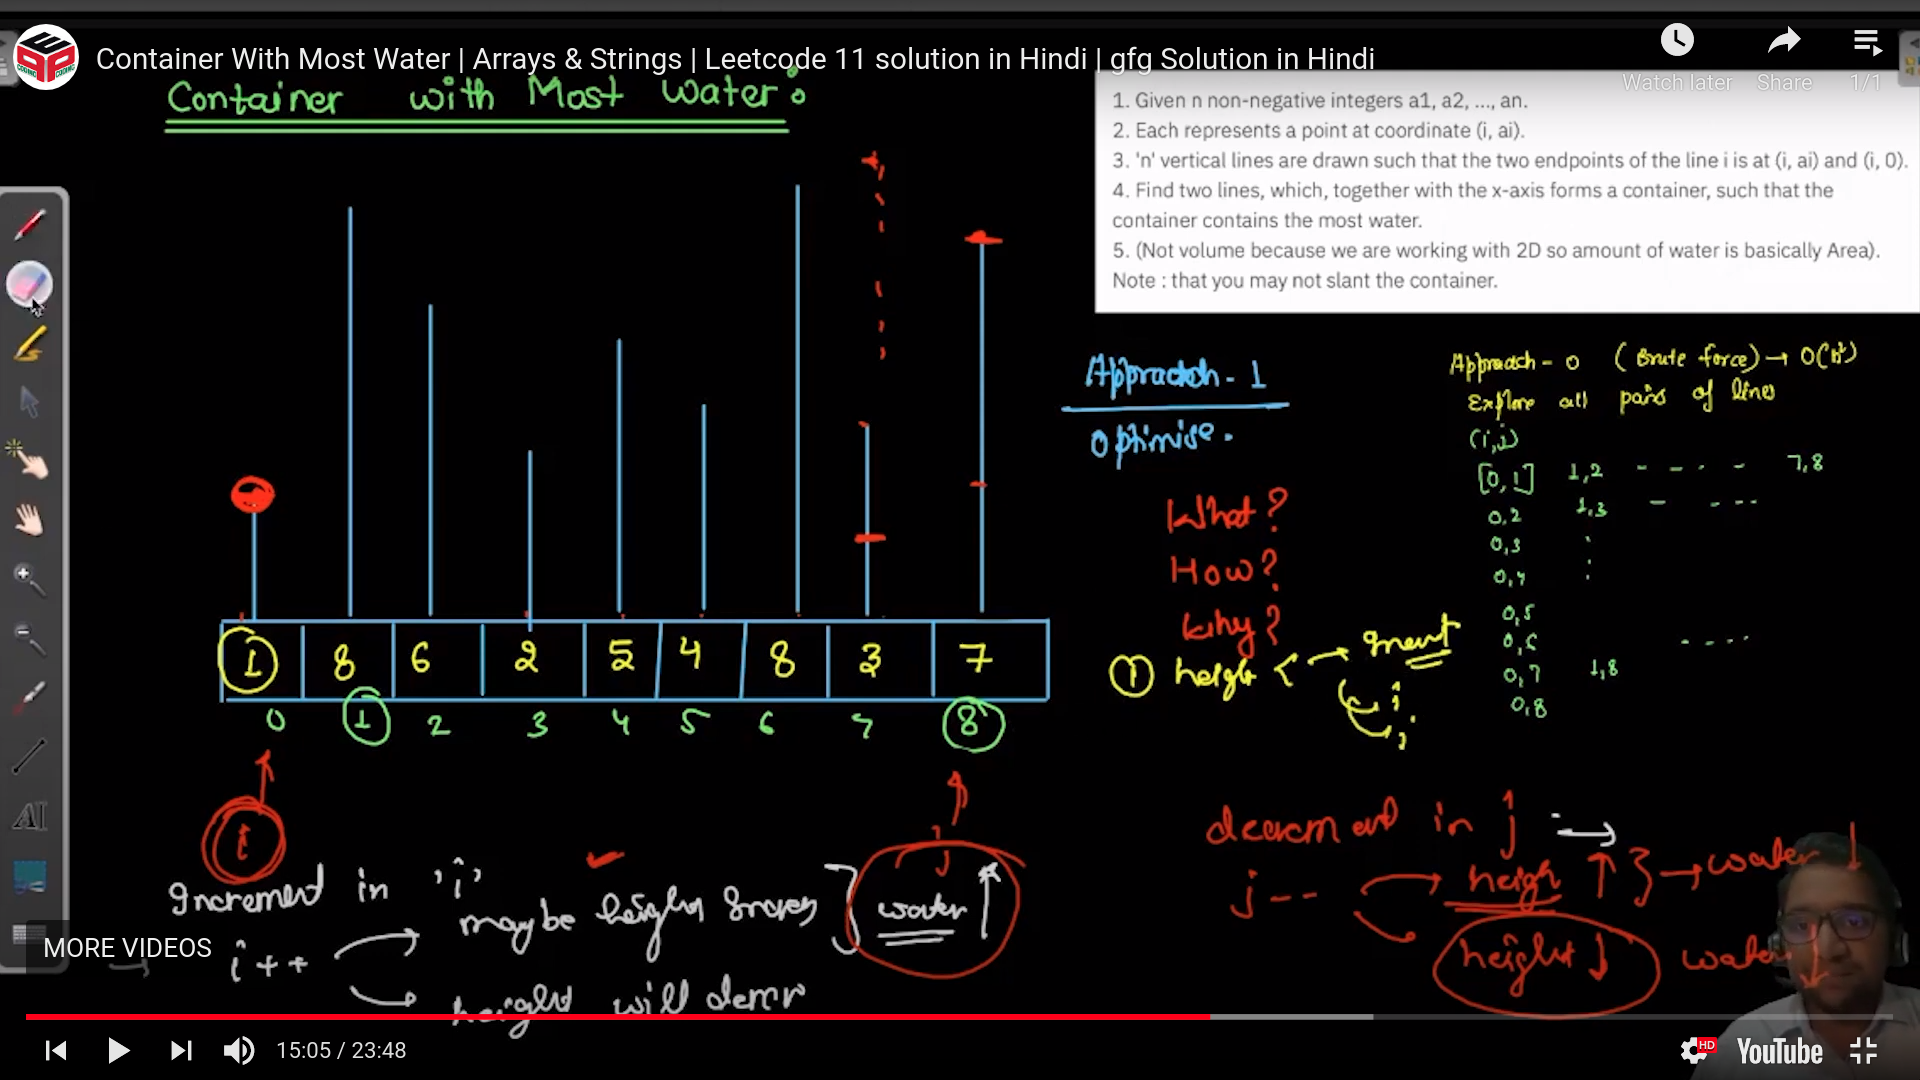 Container With Most Water | Arrays & Strings | Leetcode 11 solution in Hindi | gfg Solution in Hindi
Watch later Share 1/1
Container with Most Water:
1. Given n non-negative integers a1, a2, ..., an.
2. Each represents a point at coordinate (i, ai).
3. 'n' vertical lines are drawn such that the two endpoints of the line i is at (i, ai) and (i, 0).
4. Find two lines, which, together with the x-axis forms a container, such that the
container contains the most water.
5. (Not volume because we are working with 2D so amount of water is basically Area).
Note : that you may not slant the container.
Approach - 1
Optimise.
Approach - 0 (Brute force) → O(n²)
Explore all pairs of lines
(i,j)
[0,1] 1,2 - - - - 7,8
0,2 1,3 - - - -
0,3
0,4
0,5
0,6 - - - -
0,7 1,8
0,8
What?
How?
Why?
① height <
i
j
1 8 6 2 5 4 8 3 7
0 1 2 3 4 5 6 7 8
i
j
Increment in 'i'
i++
may be height
height will
water ↑
in j →
j-- heigh ↑ } → water ↓
height ↓ water ↓
MORE VIDEOS
15:05 / 23:48
HD
YouTube